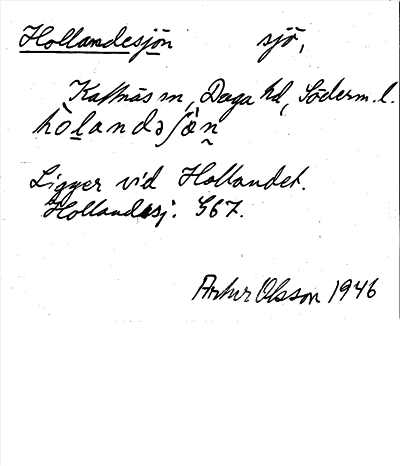 Hollandesjön sjö,
Kattnäs sn, Daga hd, Söderm. l.
hòlandəʃö̀n
Ligger vid Hollandet.
Hollandsj. G67.
Artur Olsson 1946